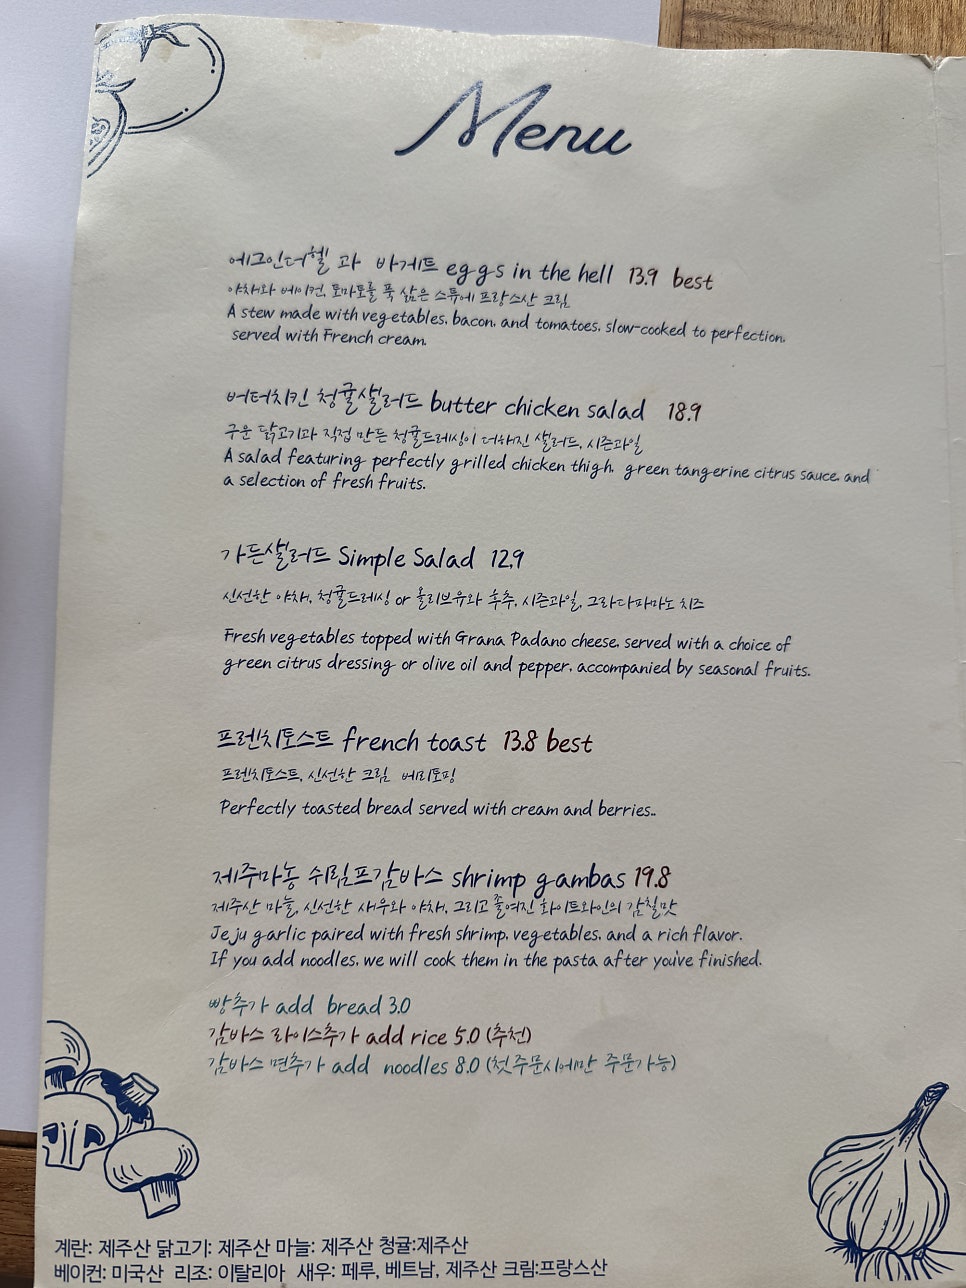 Menu
에그인더헬 과 바게트 eggs in the hell 13.9 best
야채와 베이컨, 토마토를 푹 삶은 스튜에 프랑스산 크림
A stew made with vegetables, bacon, and tomatoes, slow-cooked to perfection,
served with French cream.
버터치킨 청귤샐러드 butter chicken salad 18.9
구운 닭고기과 직접 만든 청귤드레싱이 더해진 샐러드, 시즌과일
A salad featuring perfectly grilled chicken thigh, green tangerine citrus sauce, and
a selection of fresh fruits.
가든샐러드 Simple Salad 12,9
신선한 야채, 청귤드레싱 or 올리브유와 후추, 시즌과일, 그라다파마노 치즈
Fresh vegetables topped with Grana Padano cheese, served with a choice of
green citrus dressing or olive oil and pepper, accompanied by seasonal fruits.
프렌치토스트 french toast 13.8 best
프렌치토스트, 신선한 크림 베리토핑
Perfectly toasted bread served with cream and berries..
제주마농 쉬림프감바스 shrimp gambas 19.8
제주산 마늘, 신선한 새우와 야채, 그리고 졸여진 화이트와인의 감칠맛
Jeju garlic paired with fresh shrimp, vegetables, and a rich flavor.
If you add noodles, we will cook them in the pasta after you've finished.
빵추가 add bread 3.0
감바스 라이스추가 add rice 5.0 (추천)
감바스 면추가 add noodles 8.0 (첫주문시에만 주문가능)
계란: 제주산 닭고기: 제주산 마늘: 제주산 청귤:제주산
베이컨: 미국산 리조: 이탈리아 새우: 페루, 베트남, 제주산 크림:프랑스산